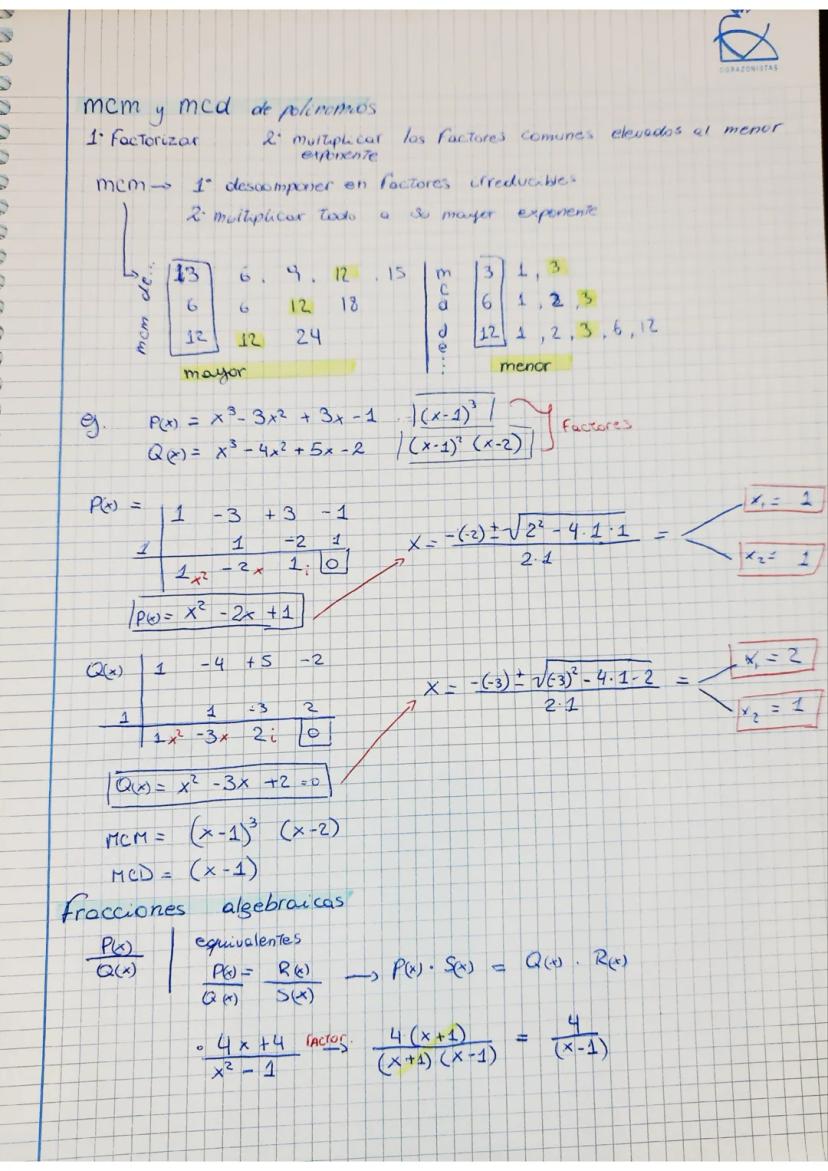 CORAZONISTAS
mcm y mcd de polinomios
1º Factorizar 2º multiplicar los factores comunes elevados al menor
exponente
mcm → 1º descomponer en factores irreducibles
2º multiplicar todo a su mayor exponente
mcm de...
13 6, 9, 12, 15
6 6 12 18
12 12 24
mayor
mcd de...
3 1, 3
6 1, 2, 3
12 1, 2, 3, 6, 12
menor
eg. P(x) = x³ - 3x² + 3x - 1 (x-1)³
Q(x) = x³ - 4x² + 5x - 2 (x-1)² (x-2)
Factores
P(x) = 1 -3 +3 -1
1 1 -2 1
1x² -2x 1i 0
P(x) = x² - 2x + 1
x = -(-2) ± √2² - 4·1·1 / 2·1 = x₁ = 1
x₂ = 1
Q(x) 1 -4 +5 -2
1 1 -3 2
1x² -3x 2i 0
Q(x) = x² - 3x + 2 = 0
x = -(-3) ± √(-3)² - 4·1·2 / 2·1 = x₁ = 2
x₂ = 1
MCM = (x-1)³ (x-2)
MCD = (x-1)
Fracciones algebraicas
P(x) / Q(x)
equivalentes
P(x) / Q(x) = R(x) / S(x) → P(x) · S(x) = Q(x) · R(x)
• 4x+4 / x² - 1 FACTOR. → 4(x+1) / (x+1)(x-1) = 4 / (x-1)